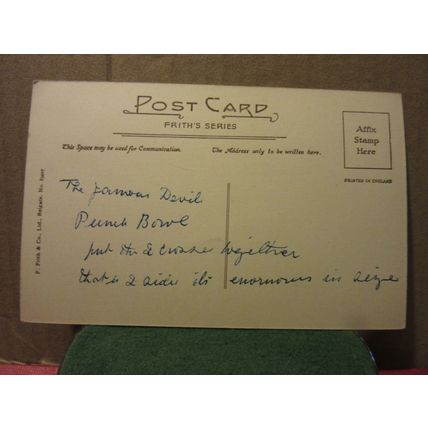 POST CARD
FRITH'S SERIES
Affix
Stamp
Here
This Space may be used for Communication.
The Address only to be written here.
PRINTED IN ENGLAND
F. Frith & Co., Ltd., Reigate. No.
The famous Devil
Punch Bowl
put the 2 together
that is 2 sides its enormous in size